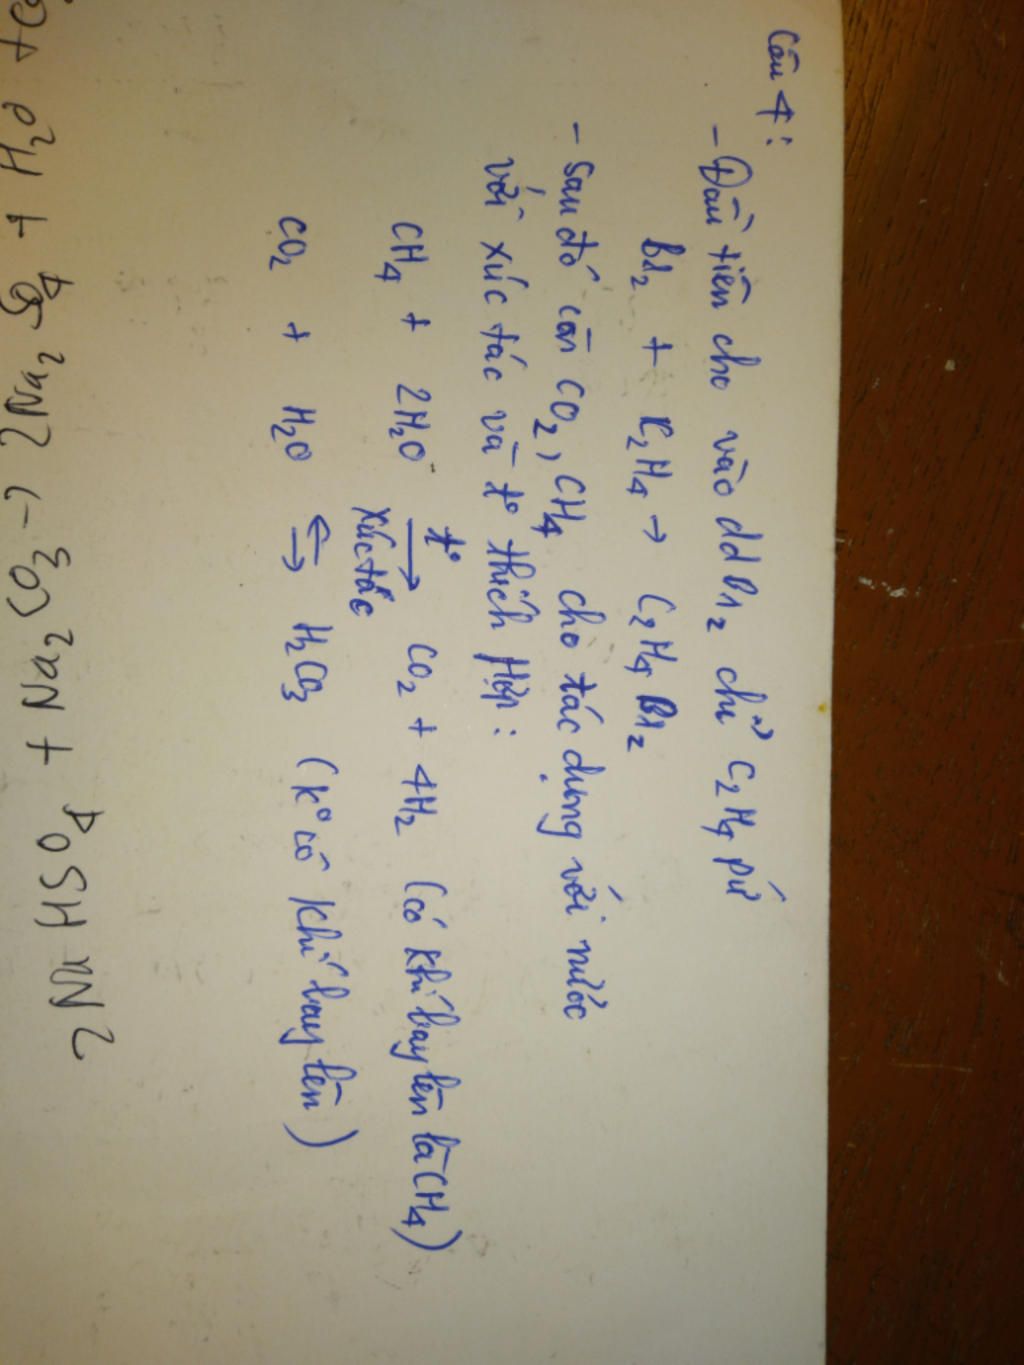 Câu 4:
- Đầu tiên cho vào dd Br2 chỉ C2H4 pứ
Br2 + C2H4 → C2H4Br2
- Sau đó còn CO2, CH4 cho tác dụng với nước
với xúc tác và t° thích hợp:
CH4 + 2H2O t° → xúc tác CO2 + 4H2 (có khí bay lên là CH4)
CO2 + H2O ⇌ H2CO3 (k° có khí bay lên)
2NaHSO4 + Na2CO3 → 2Na2SO4 + H2O +